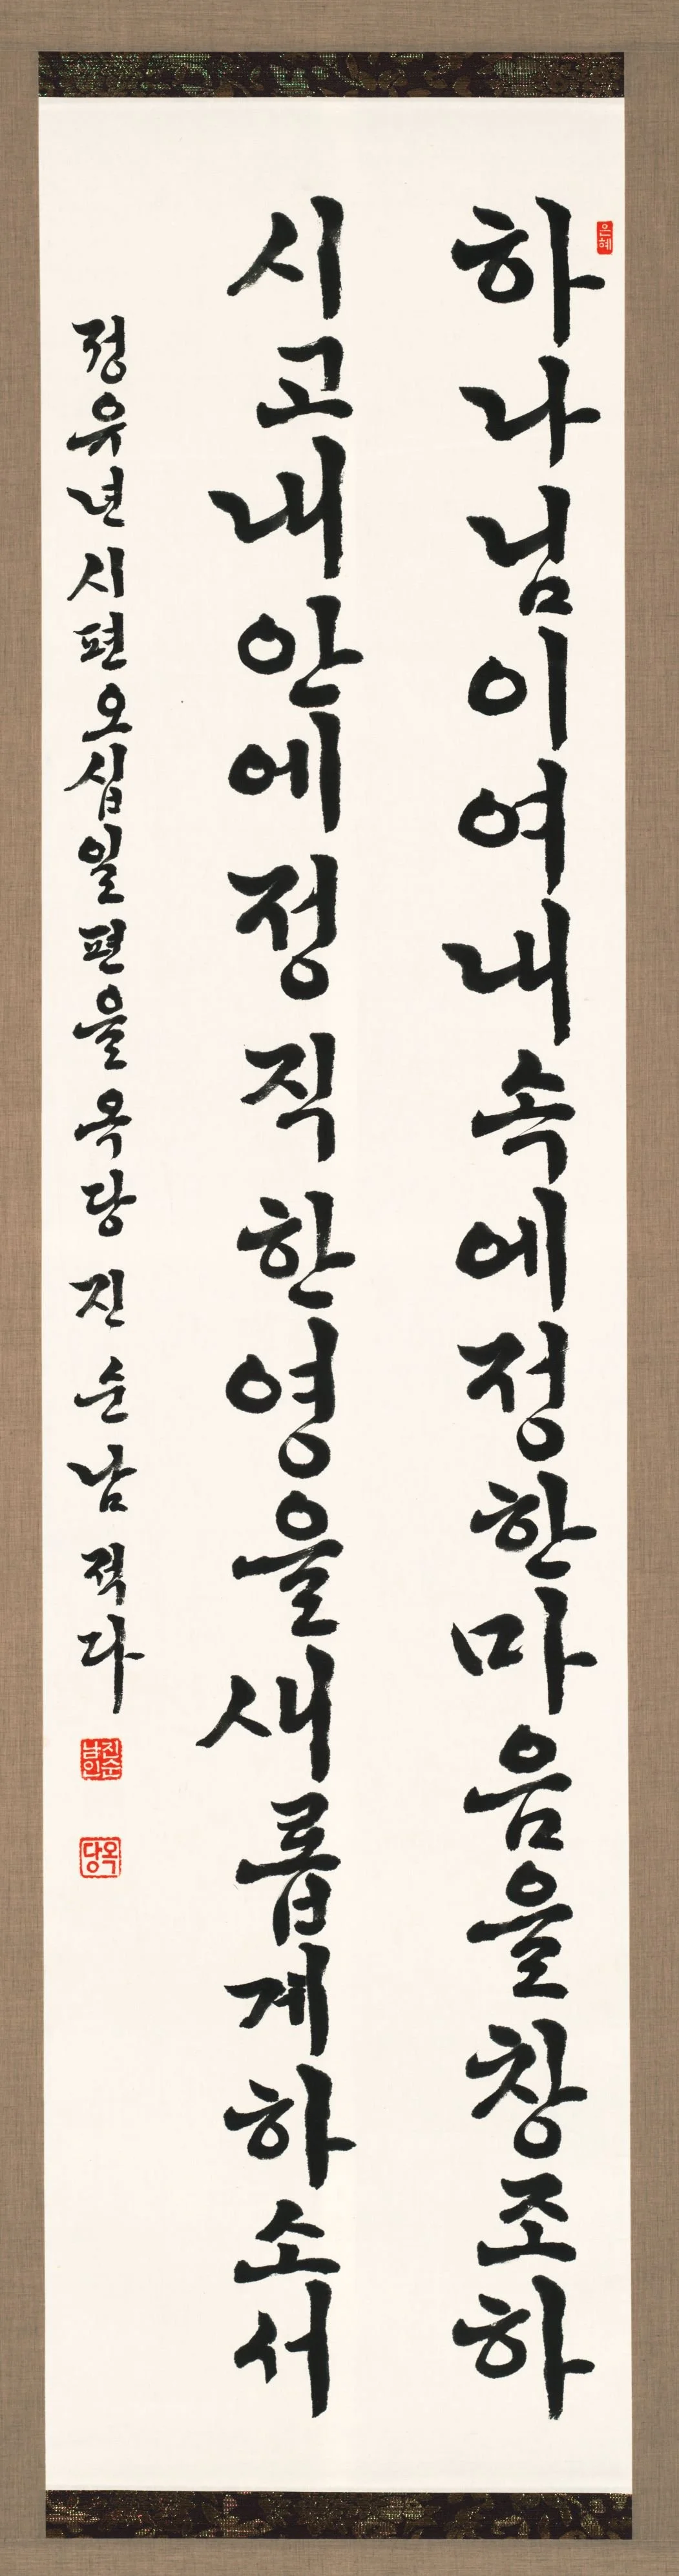 하나님이여내속에정한마음을창조하
시고내안에정직한영을새롭게하소서
정유년시편오십일편을옥당진순남적다
은혜
진순남인
옥당